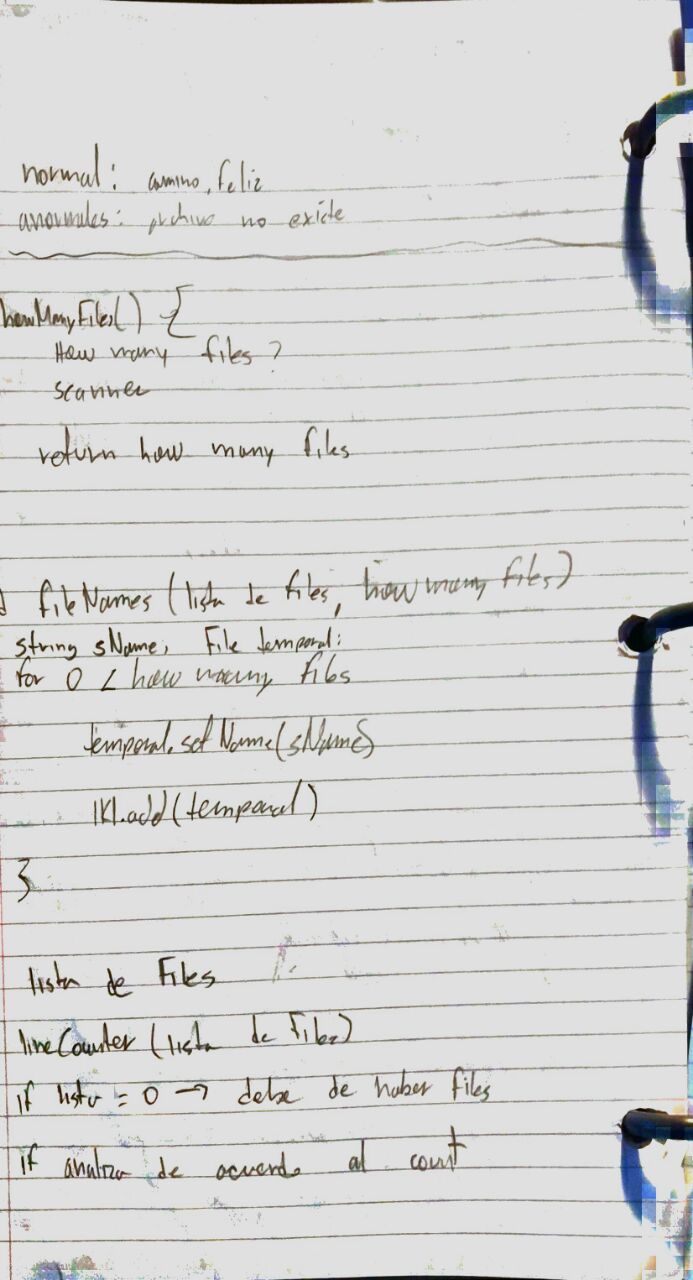 normal: camino feliz
anormales: archivo no existe
howManyFiles() {
How many files?
scanner
return how many files
fileNames (lista de files, how many files)
string sName, File temporal:
for 0 < how many files
temporal.setName(sName)
.add(temporal)
}
lista de Files
lineCounter (lista de Files)
if lista = 0 → debe de haber files
if analiza de acuerdo al count